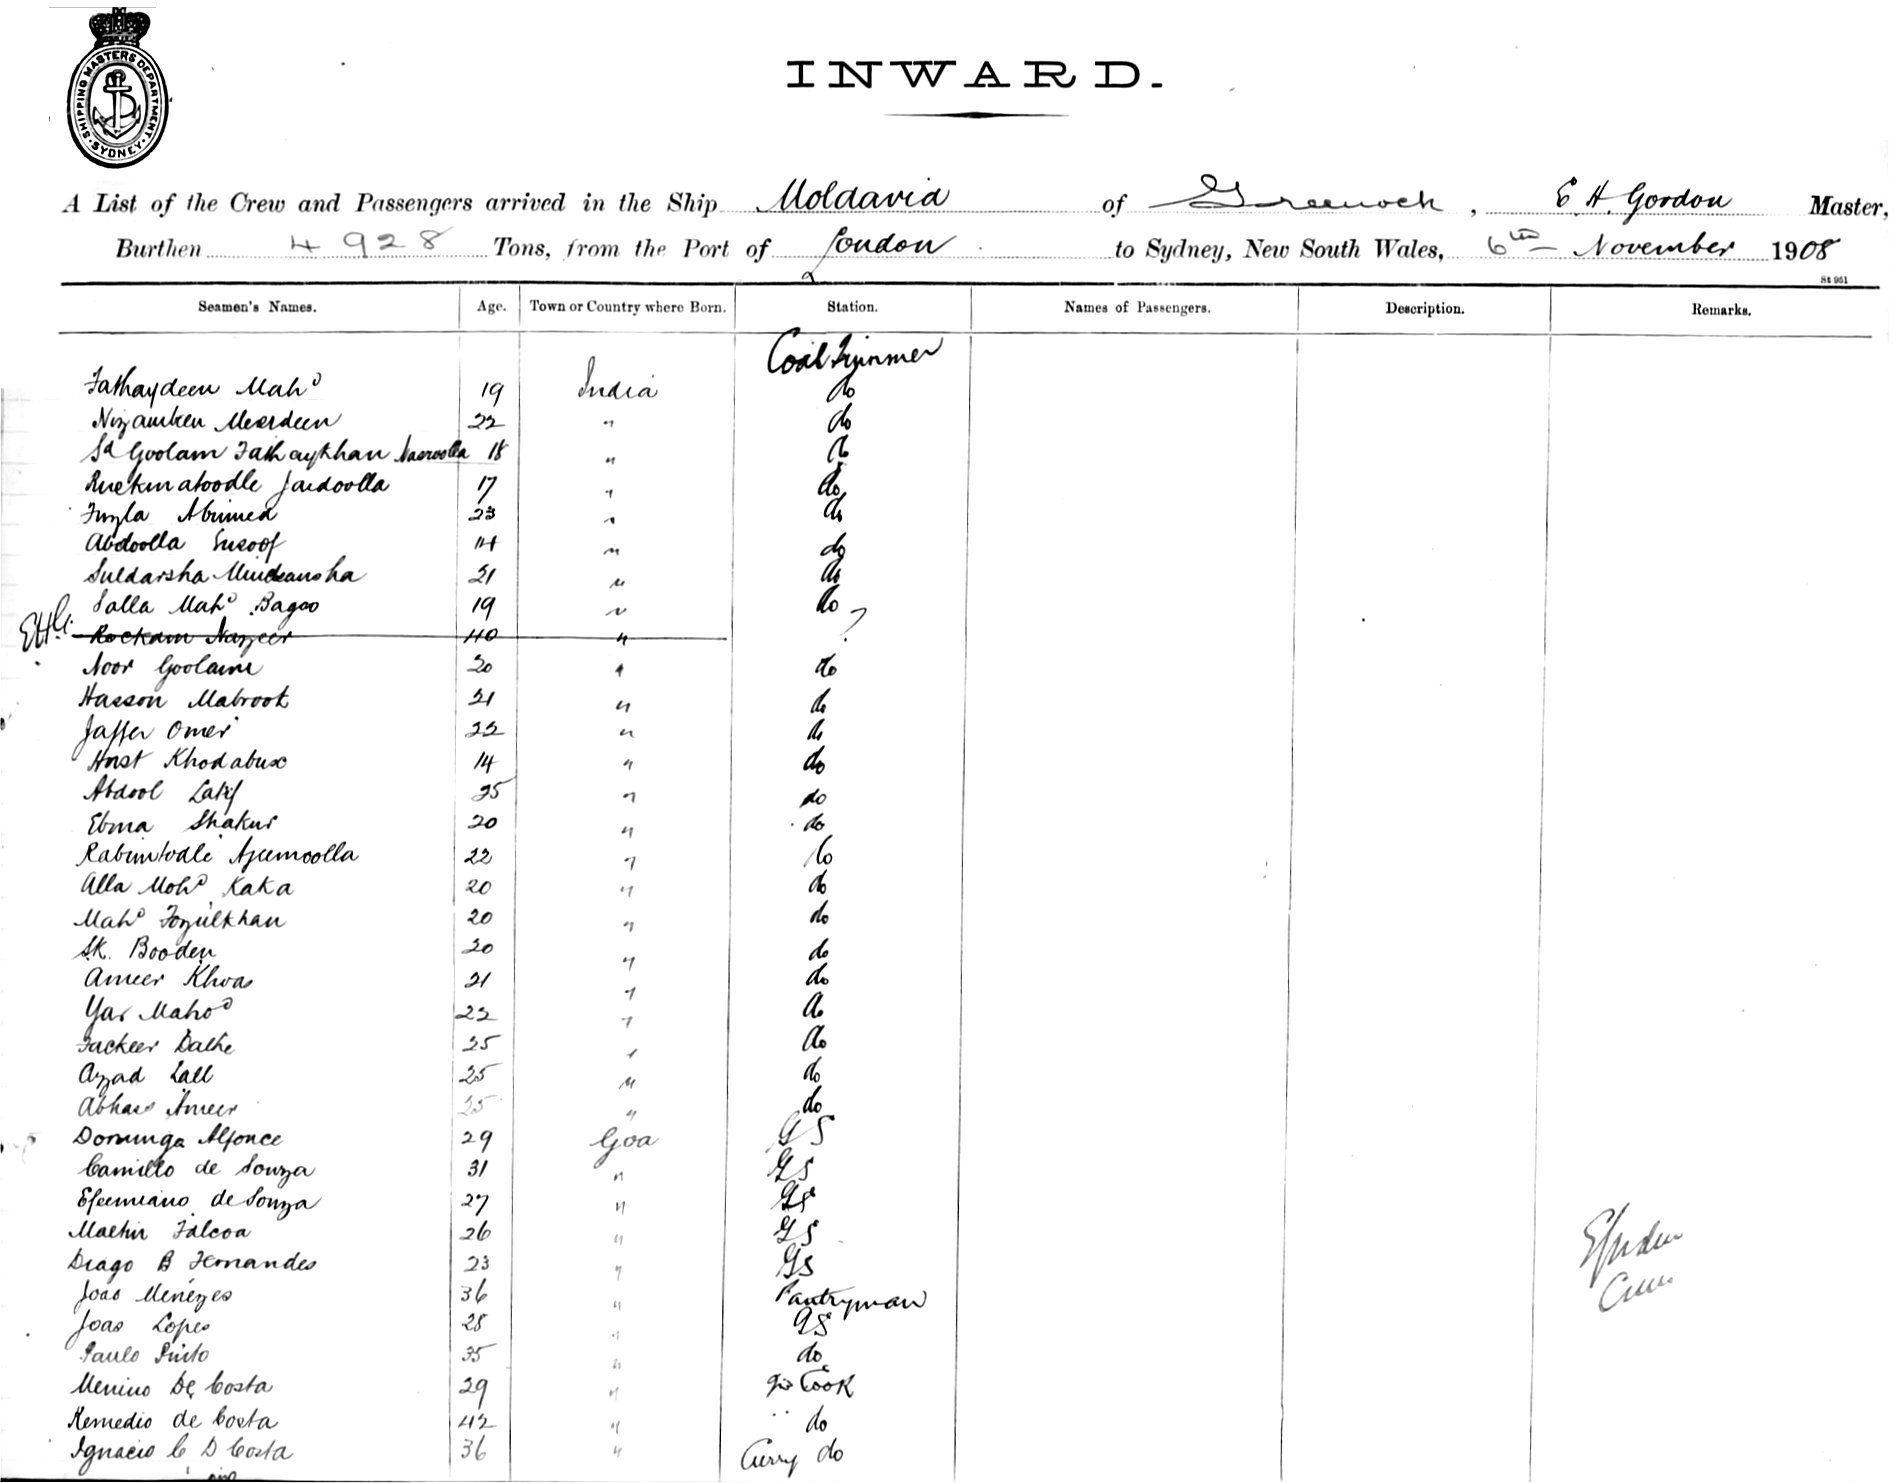 SHIPPING MASTERS DEPARTMENT. SYDNEY.
INWARD.
A List of the Crew and Passengers arrived in the Ship Moldavia of Greenock, E H. Gordon Master,
Burthen 4928 Tons, from the Port of London to Sydney, New South Wales, 6th November 1908
St 951
Seamen's Names. Age. Town or Country where Born. Station. Names of Passengers. Description. Remarks.
Coal Trimmer
Fathaydeen Mahd 19 India do
Meerdeen 22 " do
Sd Goolam Fathaykhan Nasroolla 18 " do
Jardoolla 17 " do
Fuzla 23 " do
Abdoolla Eusoof 14 " do
Suldarsha 21 " do
Salla Mahd Bagoo 19 " do
EHG. Rockam Nazeer 40 " ?
Noor Goolam 20 " do
Hasson Mabrook 21 " do
Jaffer Omer 22 " do
Khodabux 14 " do
Abdool Latif 25 " do
Ebma Shakur 20 " do
Azeemoolla 22 " do
Alla Mohd Kaka 20 " do
Mahd Fozulkhan 20 " do
SK. Booden 20 " do
Ameer Khoas 21 " do
Yar Mahod 22 " do
Fackeer 25 " do
Azad Lall 25 " do
Abhas Ameer 25 " do
Dominga Alfonce 29 Goa GS
Camillo de Souza 31 " GS
Efeemiano de Souza 27 " GS
Falcoa 26 " GS
Diago B Fernandes 23 " GS
Joao Menezes 36 " Pantryman
Joao Lopes 28 " GS
Paulo Pinto 35 " do
Menino De Costa 29 " Cook
Remedio de Costa 42 " " do
Ignacio C D Costa 36 " Curry do